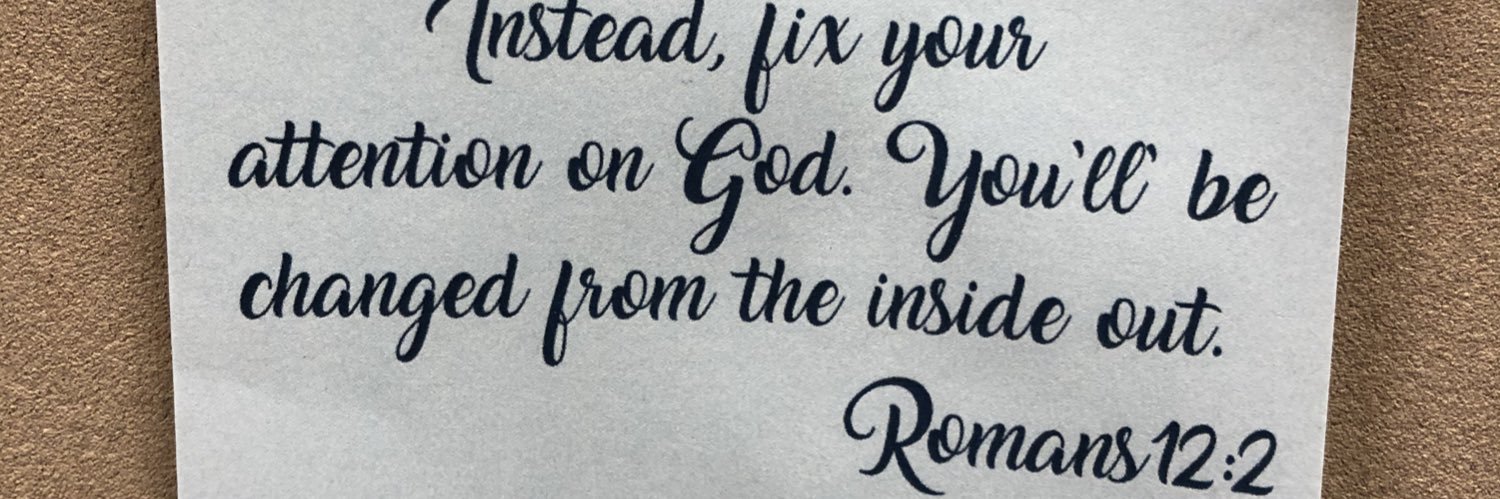 Instead, fix your
attention on God. You'll be
changed from the inside out.
Romans 12:2